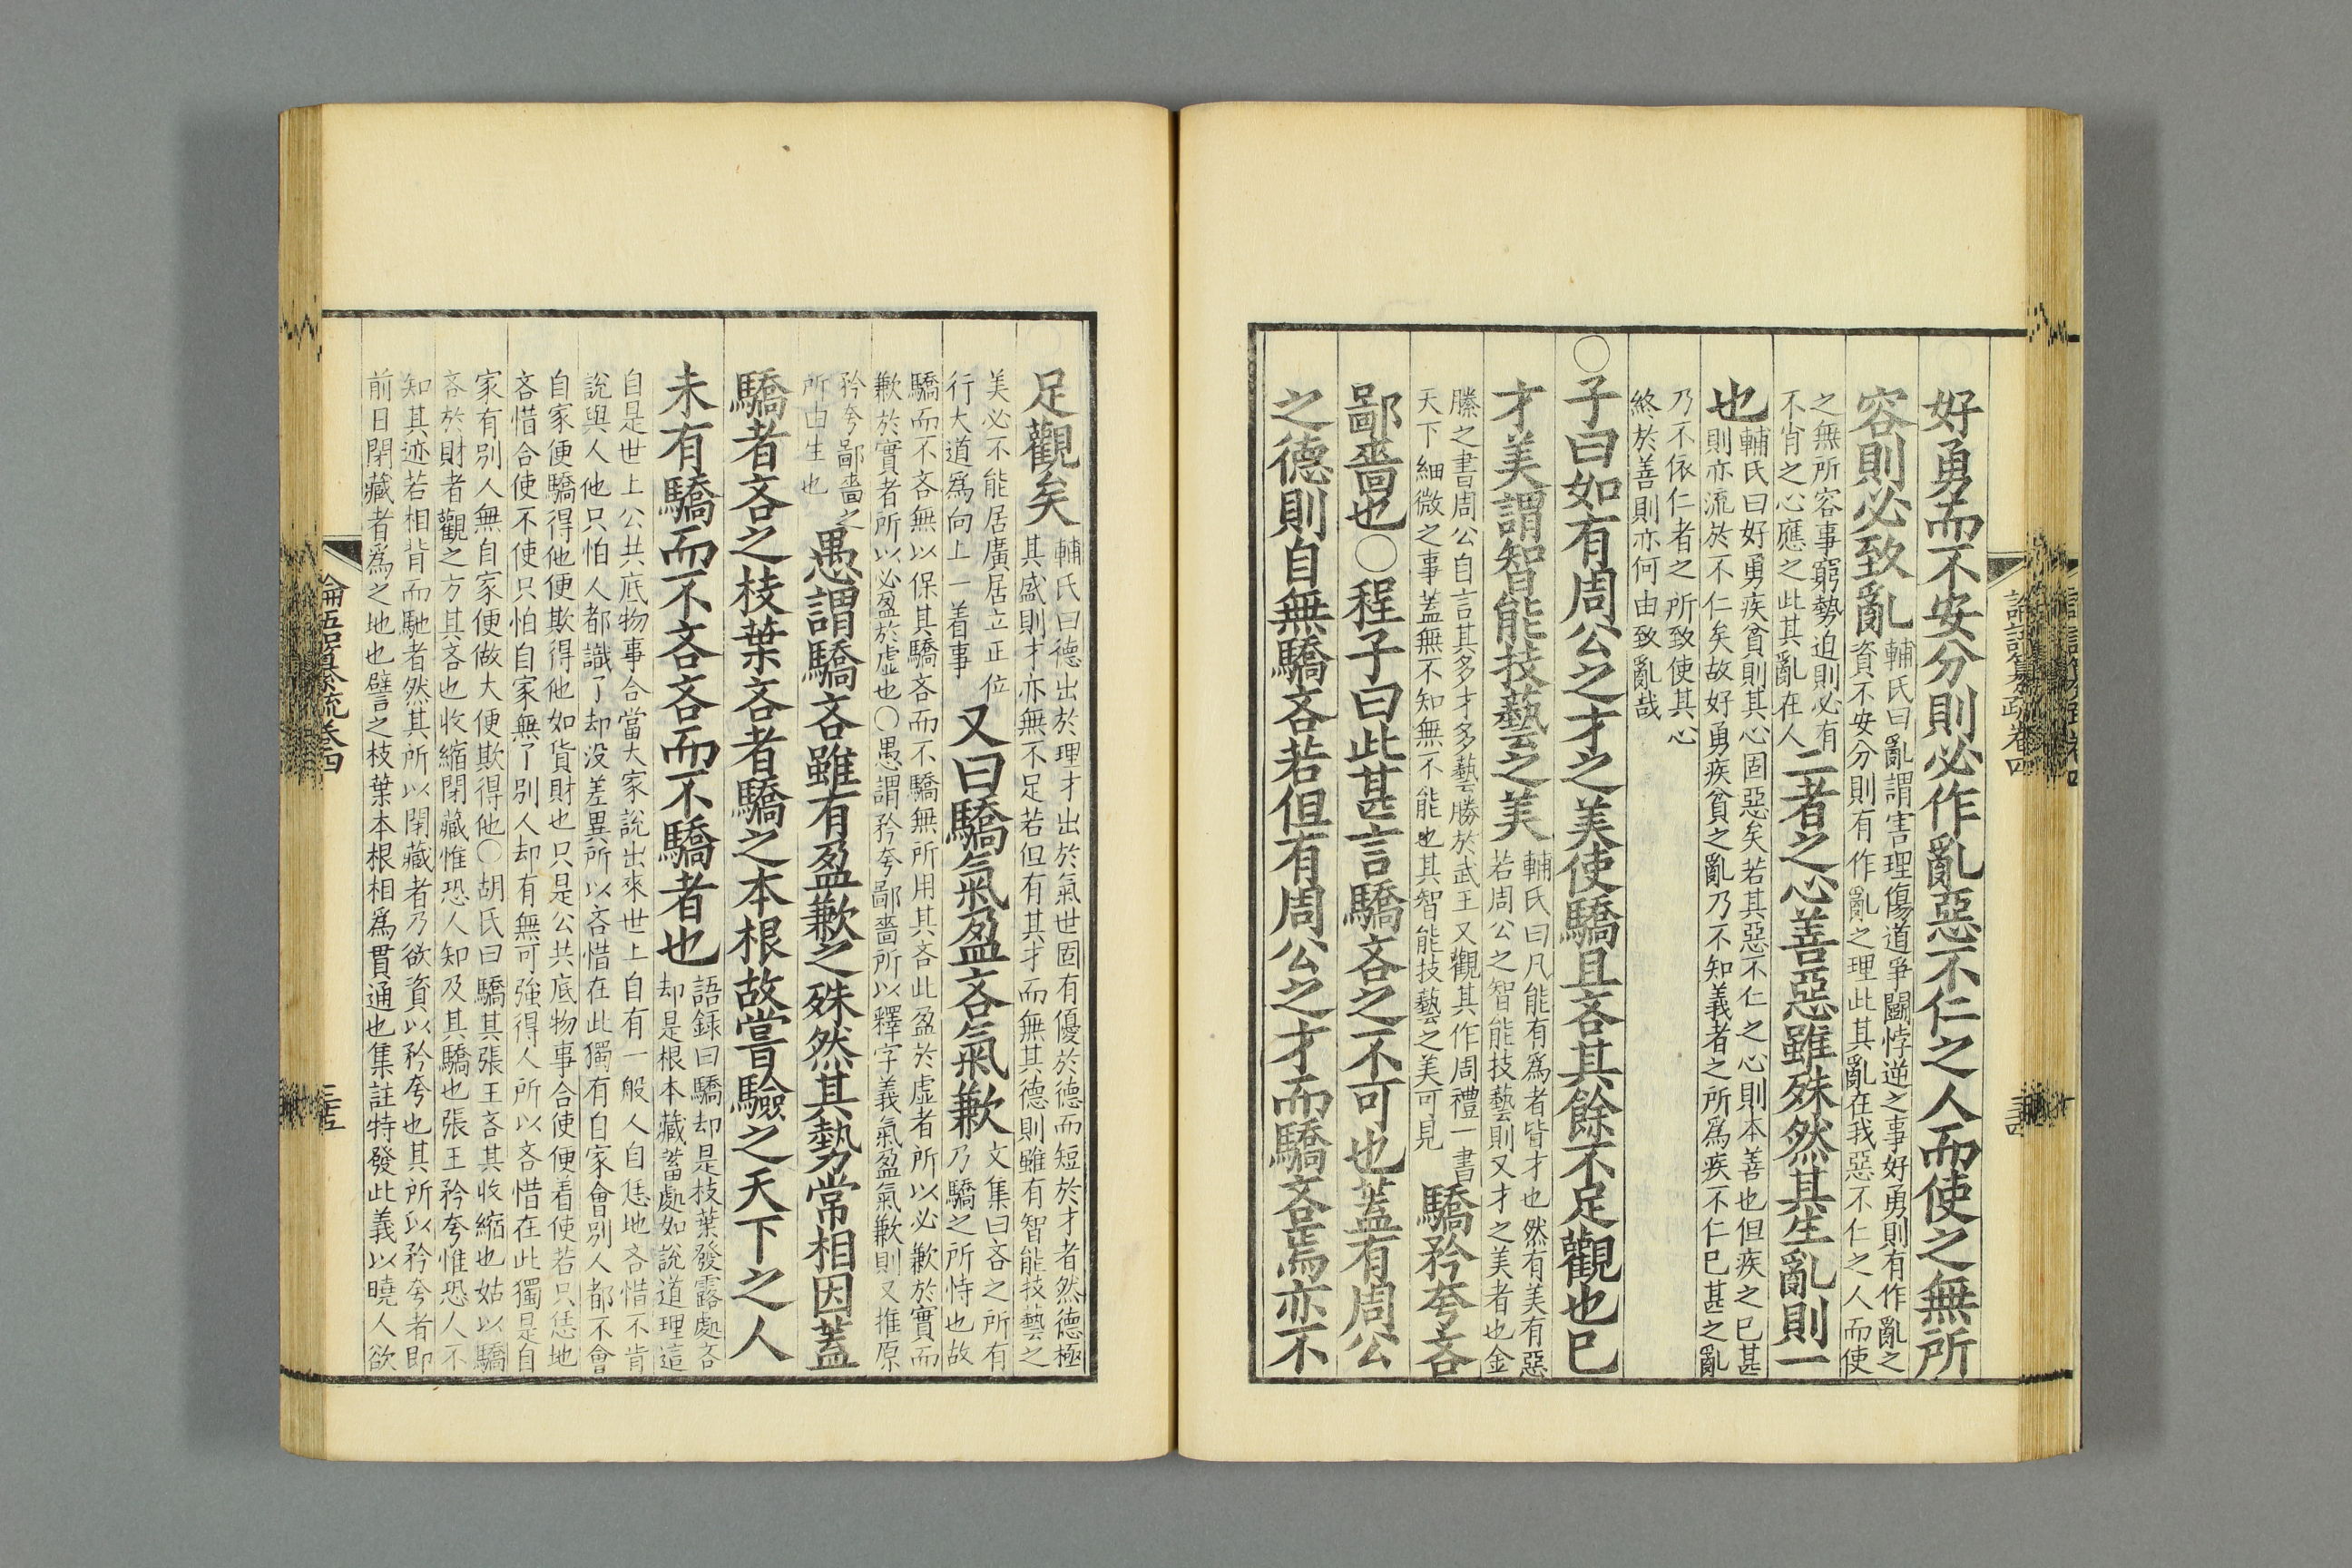 好勇而不安分則必作亂惡不仁之人而使之無所
容則必致亂
輔氏曰亂謂害理傷道爭鬭悖逆之事好勇則有作亂之
資不安分則有作亂之理此其亂在我惡不仁之人而使
之無所容事窮勢迫則必有
不肖之心應之此其亂在人
二者之心善惡雖殊然其生亂則一
也
輔氏曰好勇疾貧則其心固惡矣若其惡不仁之心則本善也但疾之已甚
則亦流於不仁矣故好勇疾貧之亂乃不知義者之所爲疾不仁已甚之亂
乃不依仁者之所致使其心
終於善則亦何由致亂哉
○子曰如有周公之才之美使驕且吝其餘不足觀也已
才美謂智能技藝之美
輔氏曰凡能有爲者皆才也然有美有惡
若周公之智能技藝則又才之美者也金
縢之書周公自言其多才多藝勝於武王又觀其作周禮一書
天下細微之事蓋無不知無不能也其智能技藝之美可見
驕矜夸吝
鄙嗇也○程子曰此甚言驕吝之不可也蓋有周公
之德則自無驕吝若但有周公之才而驕吝焉亦不
足觀矣
輔氏曰德出於理才出於氣世固有優於德而短於才者然德極
其盛則才亦無不足若但有其才而無其德則雖有智能技藝之
美必不能居廣居立正位
行大道爲向上一着事
又曰驕氣盈吝氣歉
文集曰吝之所有
乃驕之所恃也故
驕而不吝無以保其驕吝而不驕無所用其吝此盈於虛者所以必歉於實而
歉於實者所以必盈於虛也○愚謂矜夸鄙嗇所以釋字義氣盈氣歉則又推原
矜夸鄙嗇之
所由生也
愚謂驕吝雖有盈歉之殊然其勢常相因蓋
驕者吝之枝葉吝者驕之本根故嘗驗之天下之人
未有驕而不吝吝而不驕者也
語録曰驕却是枝葉發露處吝
却是根本藏蓄處如說道理這
自是世上公共底物事合當大家說出來世上自有一般人自恁地吝惜不肯
說與人他只怕人都識了却没差異所以吝惜在此獨有自家會別人都不會
自家便驕得他便欺得他如貨財也只是公共底物事合使便着使若只恁地
吝惜合使不使只怕自家無了別人却有無可強得人所以吝惜在此獨是自
家有別人無自家便做大便欺得他○胡氏曰驕其張王吝其收縮也姑以驕
吝於財者觀之方其吝也收縮閉藏惟恐人知及其驕也張王矜夸惟恐人不
知其迹若相背而馳者然其所以閉藏者乃欲資以矜夸也其所以矜夸者即
前日閉藏者爲之地也譬之枝葉本根相爲貫通也集註特發此義以曉人欲
論語纂疏卷四
三五